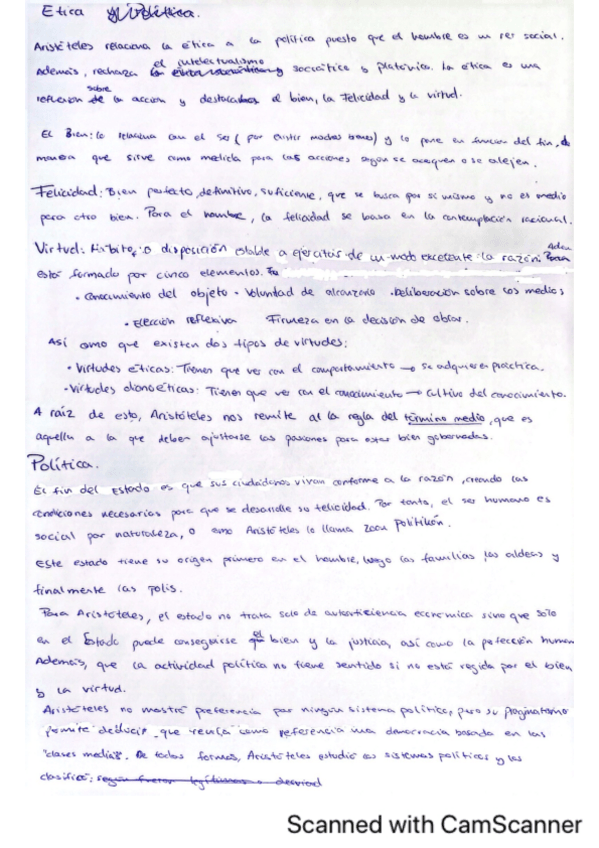 Etica y Política.
Aristóteles relaciona la ética a la política puesto que el hombre es un ser social.
Además, rechaza el intelectualismo socrático y platónico. La ética es una
reflexión sobre la acción y destacamos el bien, la Felicidad y la virtud.
El Bien: lo relaciona con el ser (por existir modos bienes) y lo pone en función del fin, de
manera que sirve como medida para las acciones según se acerquen o se alejen.
Felicidad: Bien perfecto, definitivo, suficiente, que se busca por sí mismo y no es medio
para otro bien. Para el hombre, la felicidad se basa en la contemplación racional.
Virtud: Hábito, o disposición estable a ejercitar de un modo excelente la razón.
está formado por cinco elementos.
• Conocimiento del objeto • Voluntad de alcanzarlo • Deliberación sobre los medios
• Elección reflexiva Firmeza en la decisión de obrar.
Así como que existen dos tipos de virtudes:
• Virtudes éticas: Tienen que ver con el comportamiento → se adquieren práctica.
• Virtudes dianoéticas: Tienen que ver con el conocimiento → Cultivo del conocimiento.
A raíz de esto, Aristóteles nos remite al la regla del término medio, que es
aquella a la que deben ajustarse las pasiones para estar bien gobernadas.
Política.
El fin del Estado es que sus ciudadanos vivan conforme a la razón, creando las
condiciones necesarias para que se desarrolle su felicidad. Por tanto, el ser humano es
social por naturaleza, o como Aristóteles lo llama zoon politikón.
Este estado tiene su origen primero en el hombre, luego las familias, las aldeas y
finalmente las polis.
Para Aristóteles, el estado no trata solo de autosuficiencia económica sino que solo
en el Estado puede conseguirse el bien y la justicia, así como la perfección human
Además, que la actividad política no tiene sentido si no está regida por el bien
y la virtud.
Aristóteles no mostró preferencia por ningún sistema político, pero su pragmatismo
permite deducir que tenía como referencia una democracia basada en las
"clases medias". De todas formas, Aristóteles estudió los sistemas políticos y los
clasificó: según fueran legítimos o
Scanned with CamScanner